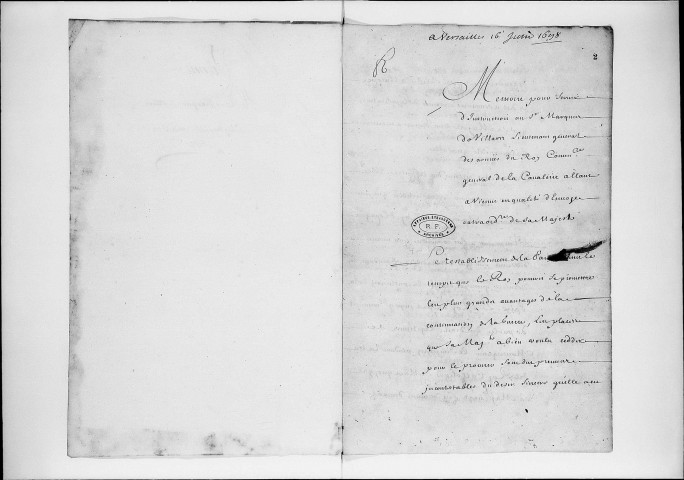 a Versailles 16 Juin 1698
2
Memoire pour servir
d'Instruction au Sr. Marquis
de Villars Lieutenant general
des armées du Roy Comm.re
general de la Cavalerie allant
a Vienne en qualité d'Envoyé
extraord.re de sa Majesté
R. F.
Le restablissement de la Paix dans le
temps que le Roy pouvoit se promettre
les plus grands avantages de la
continuation de la Guerre, les places
que sa Maj.té a bien voulu ceder
pour le
incontestables du desir sincere qu'elle a eu